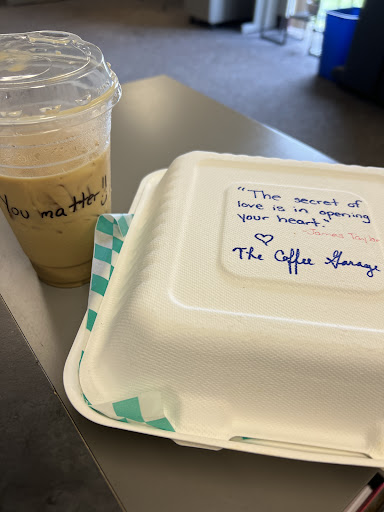 You matter!!
"The secret of
love is in opening
your heart."
-James Taylor
♡
The Coffee Garage